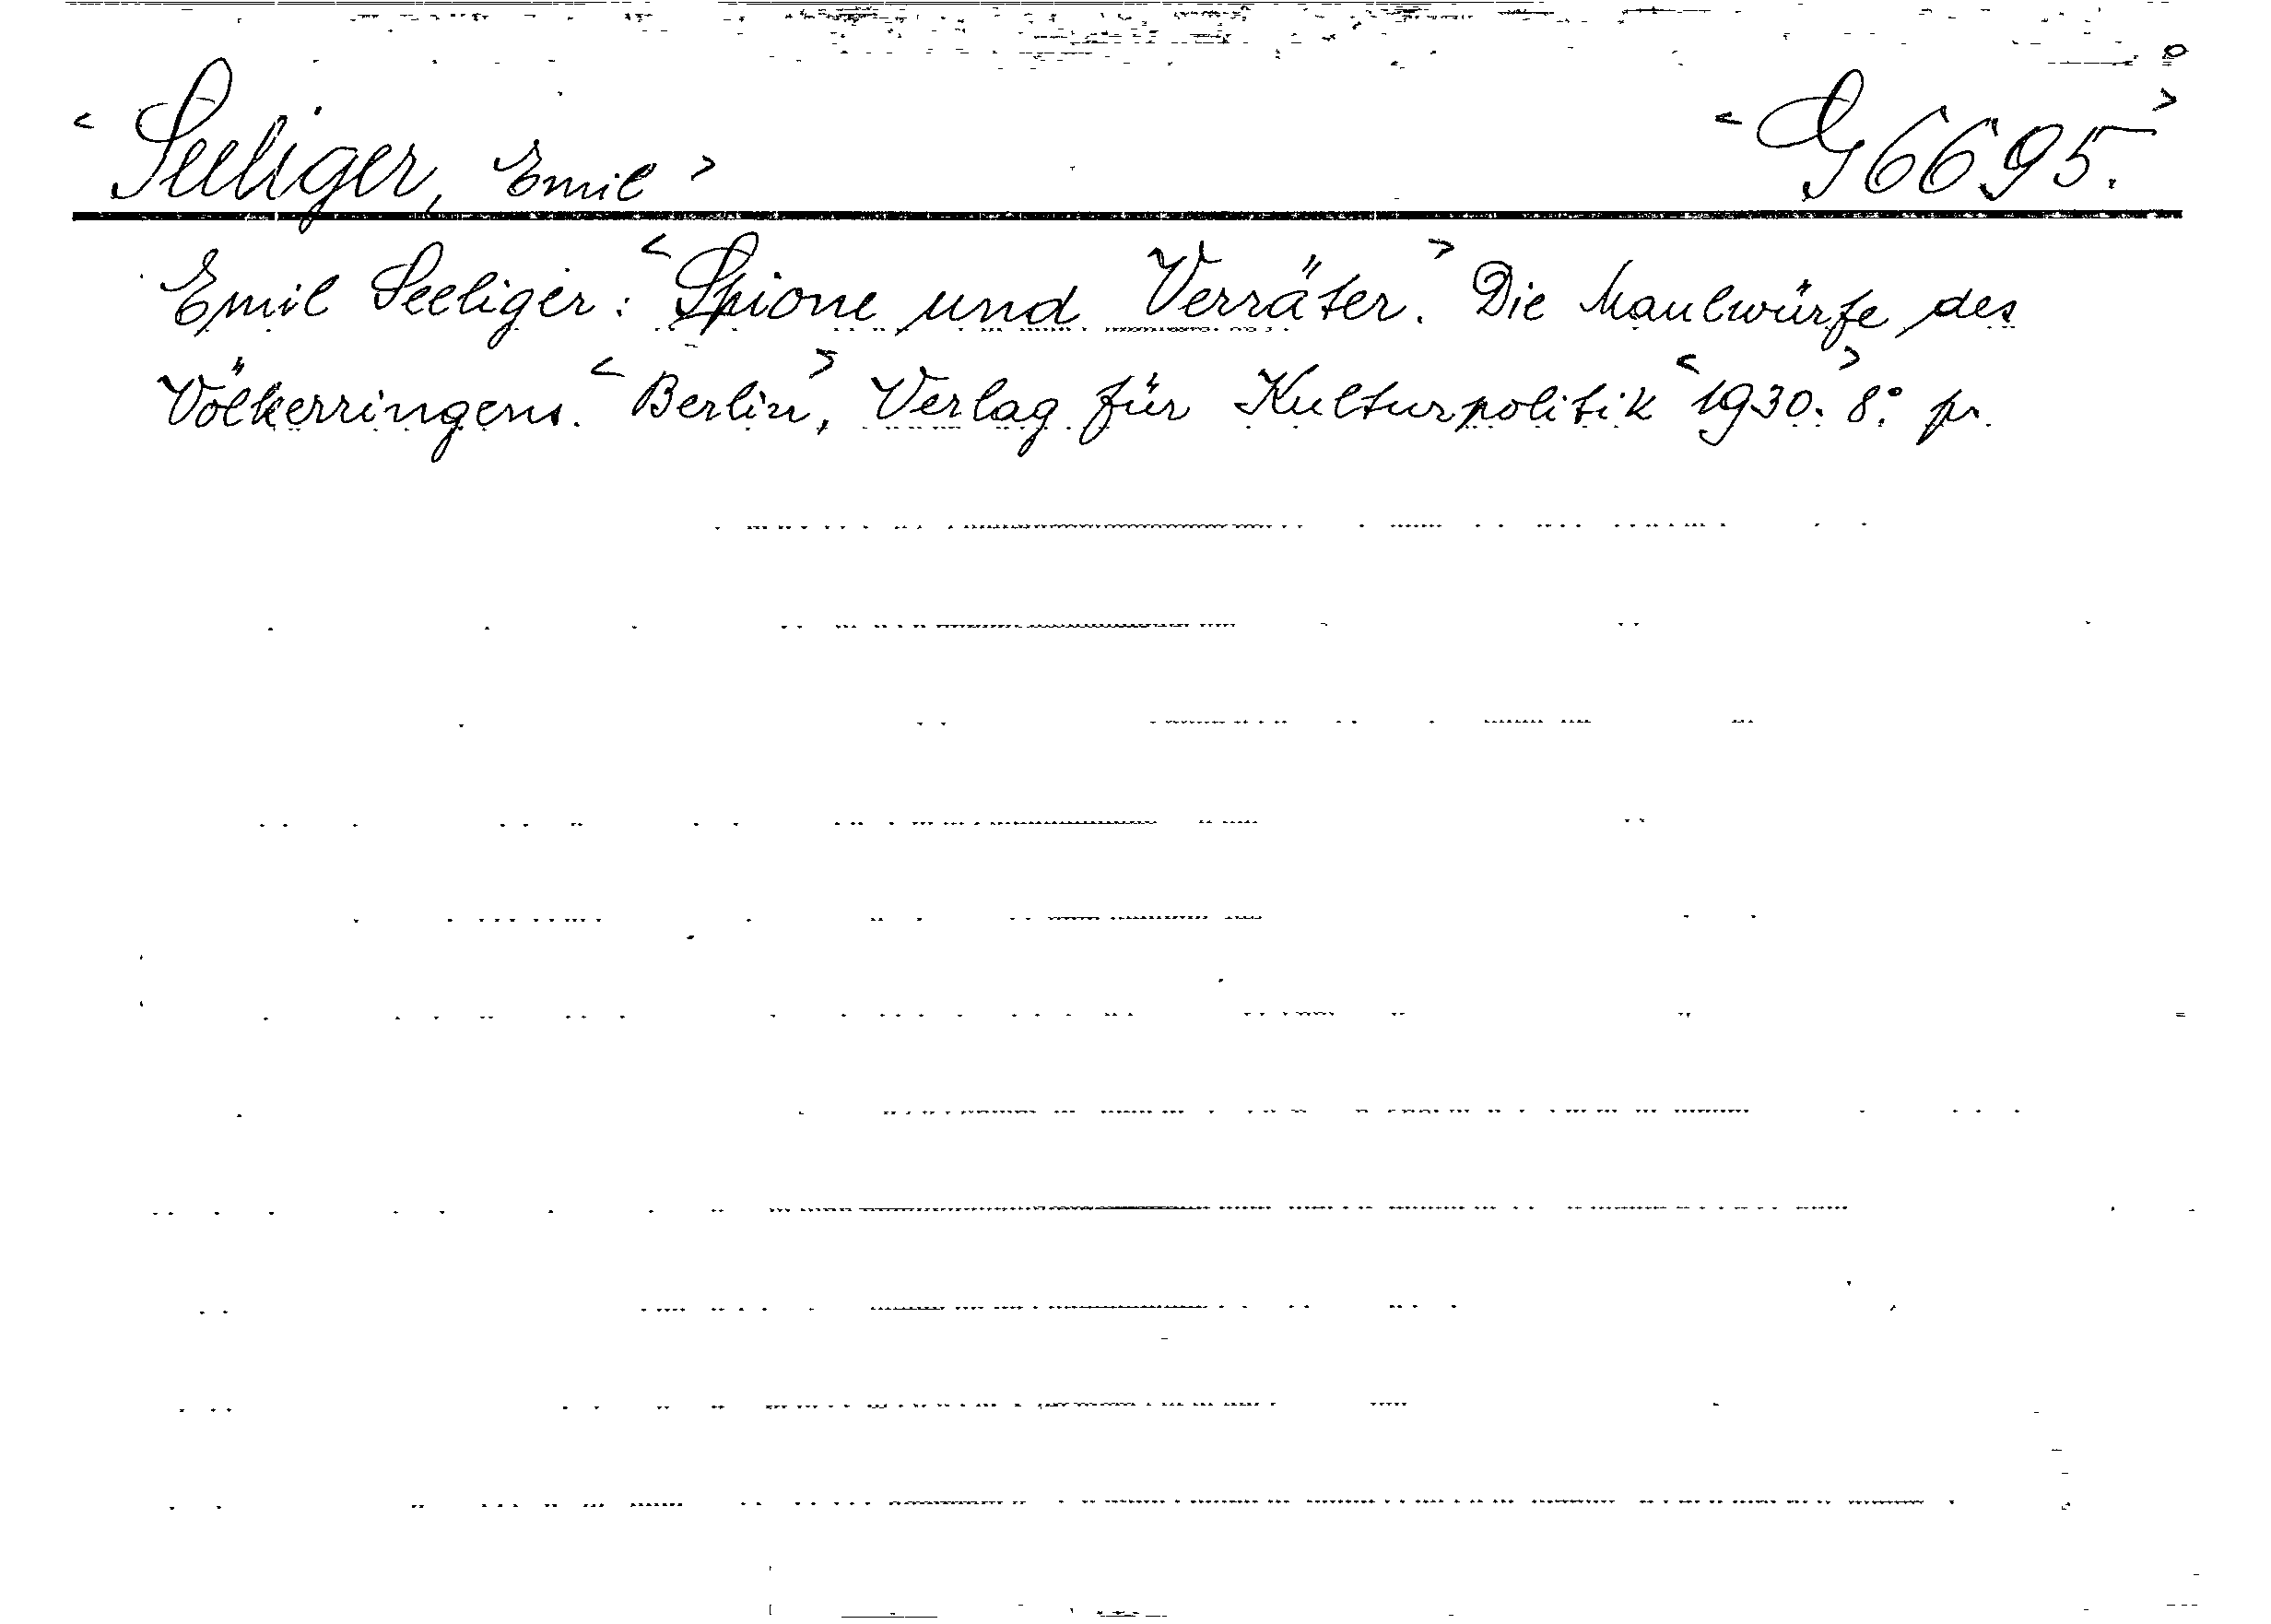 <Seeliger, Emil> <G 6695.>
Emil Seeliger: <Spione und Verräter.> Die Maulwürfe des
Völkerringens. <Berlin>, Verlag für Kulturpolitik <1930.> 8.° pr.